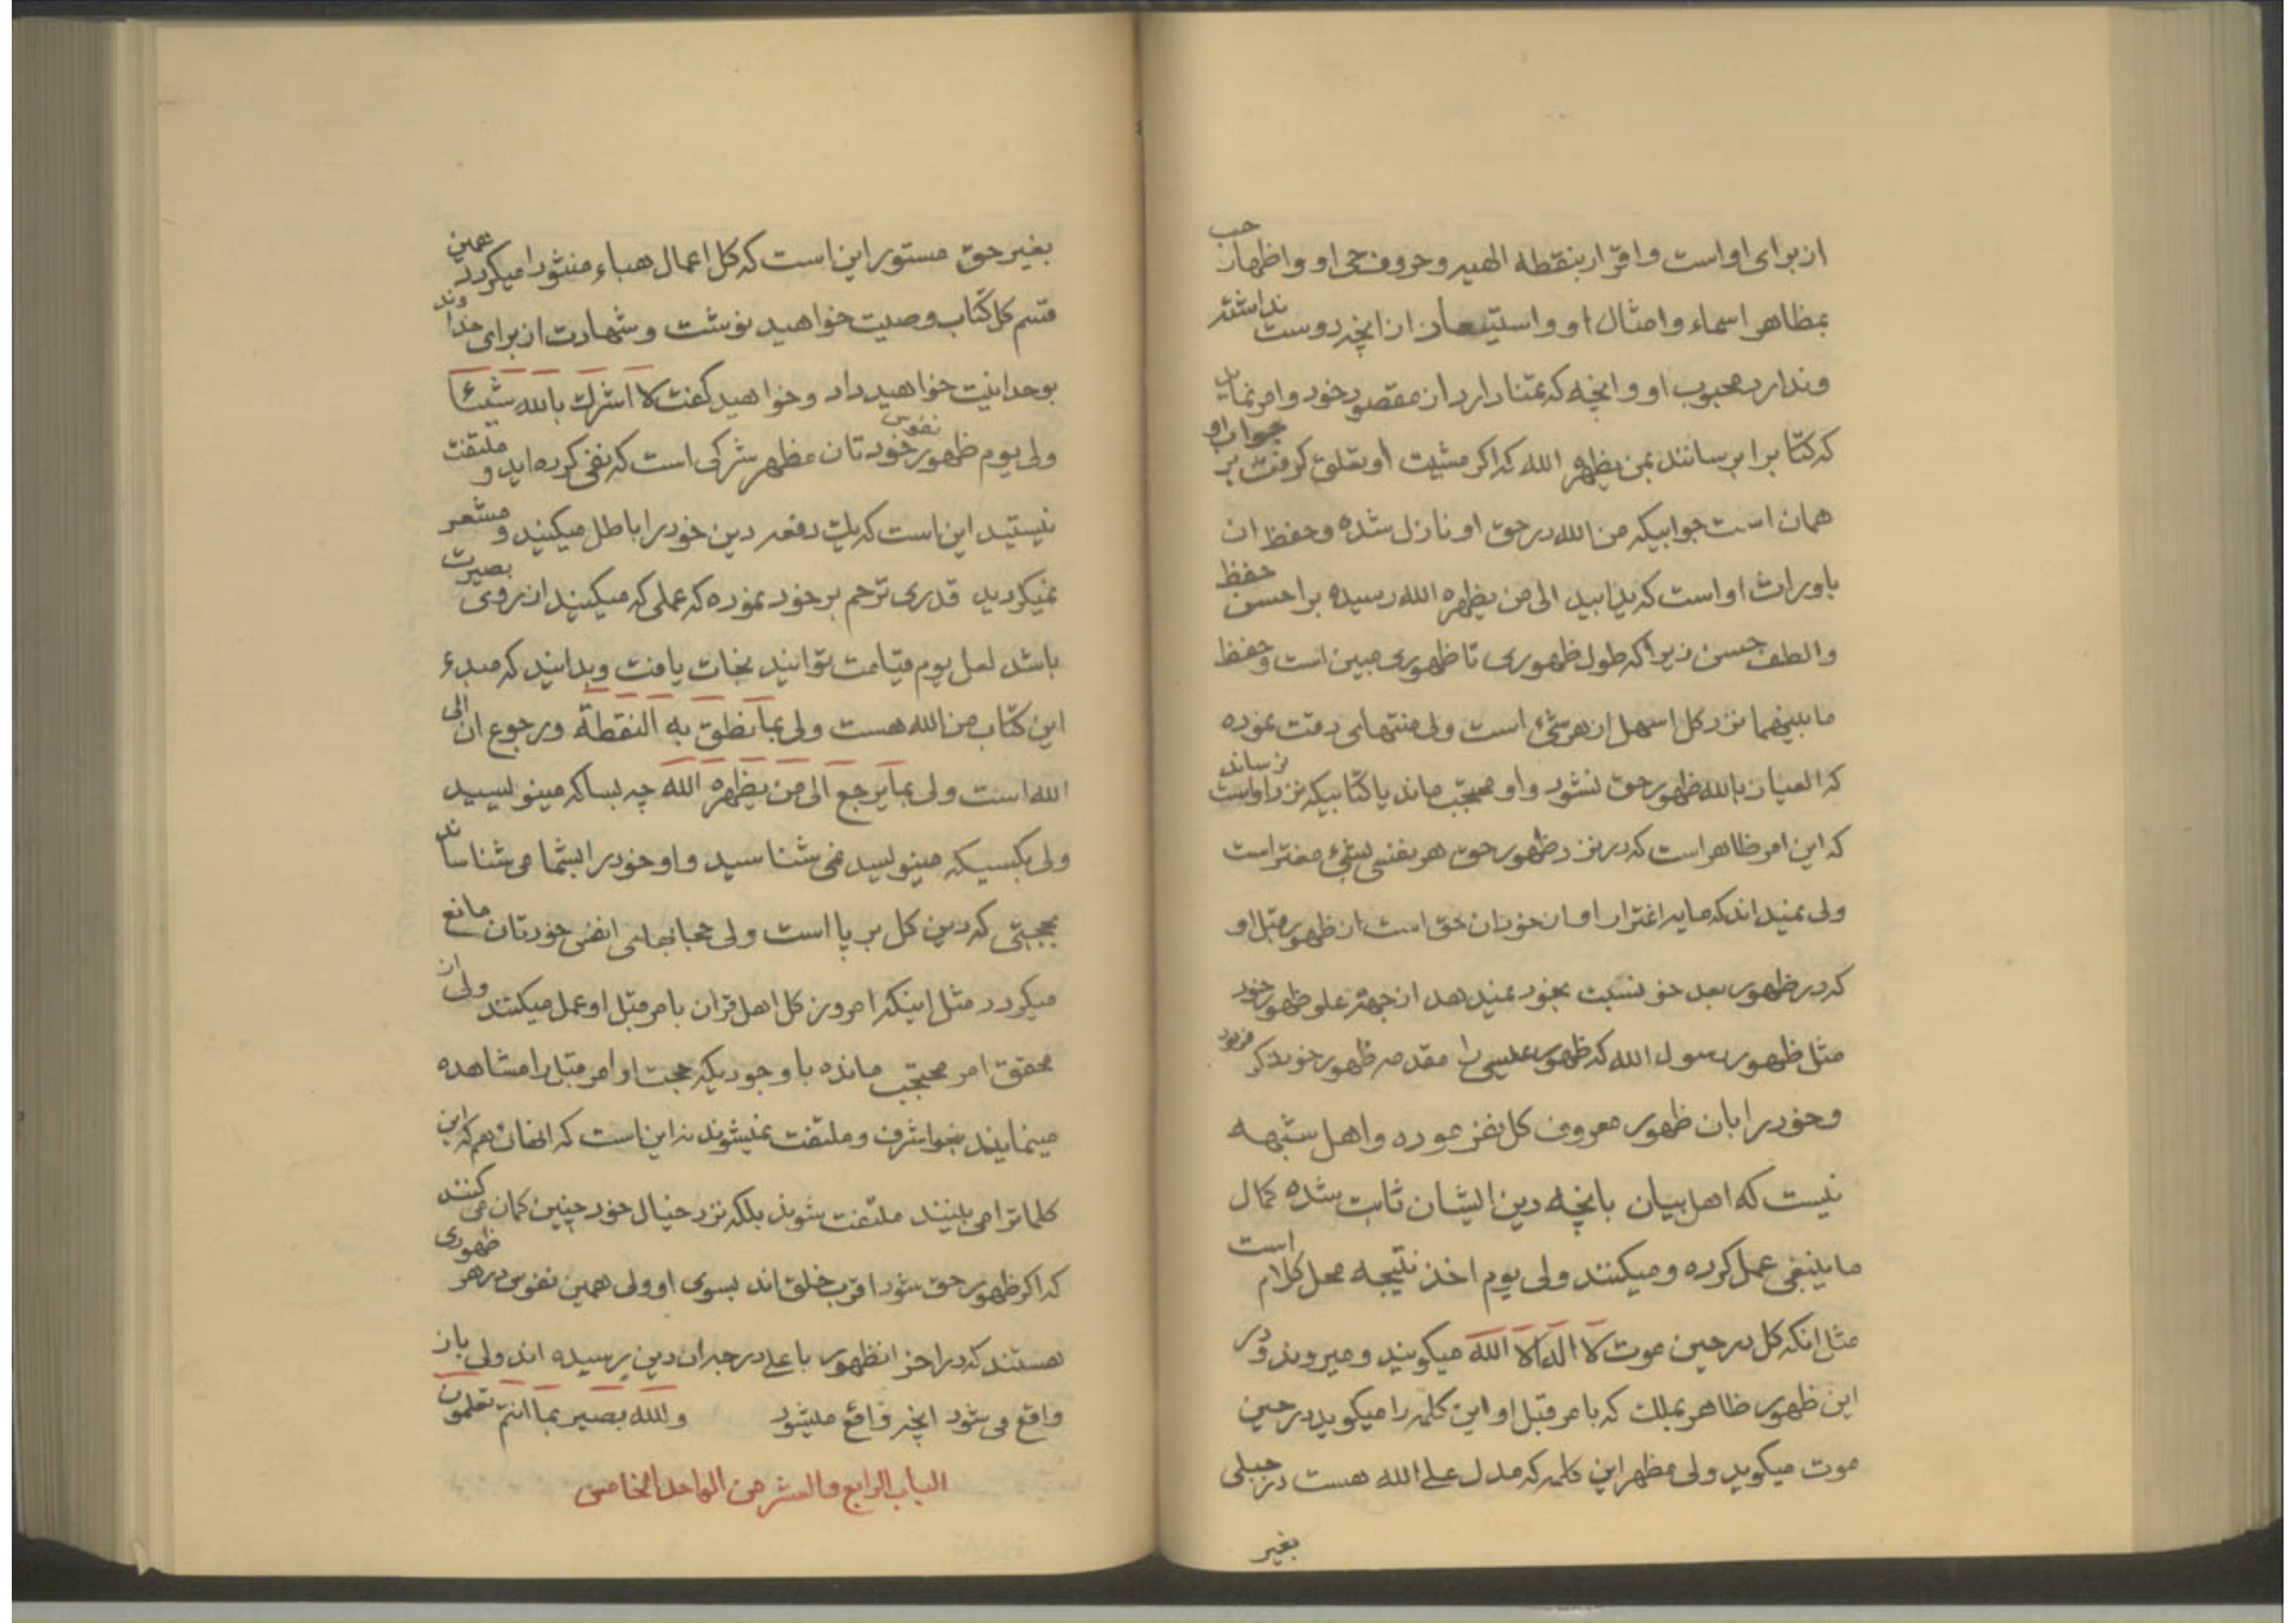 از برای او است و اقرار بنقطه الهیه و حروف حی او و اظهار حب
بمظاهر اسماء و امثال او و استیعاذ از انچه دوست نداشته
و ندارد محبوب او و انچه که تمنا دارد از مقصود خود و امر نماید
که کتابرا برسانند بمن یظهره الله که اکر مشیت او تعلق کرفت بر جواب او
همان است جوابیکه من الله در حق او نازل شده و حفظ ان
با وراث او است که یدا بید الی من یظهره الله رسیده بر احسن حفظ
و الطف حسن زیرا که طول ظهوری تا ظهوری مبین است و حفظ
ما بینهما نزد کل اسهل از هر شئ است ولی منتهای دقت نموده
که العیاذ بالله ظهور حق نشود و او محتجب ماند یا کتابیکه نزد اوست نرساند
که این امر ظاهر است که در نزد ظهور حق هر نفسی بشیء مغتر است
ولی نمیداند که مایه اغترار او از خود ان حق است از ظهور قبل او
که در ظهور بعد حق نسبت بخود نمیدهد از جهة علو ظهور خود
مثل ظهور رسول الله که ظهور عیسی را مقدمه ظهور خود ذکر فرمود
و خود را بان ظهور معروف کل نفرموده و اهل شبهه
نیست که اهل بیان بانچه دین ایشان ثابت شده کمال
ما ینبغی عمل کرده و میکنند ولی یوم اخذ نتیجه محل کلام است
مثل انکه کل در حین موت لا اله الا الله میکویند و میروند و در
این ظهور ظاهر بملک که بامر قبل او این کلمه را میکوید در حین
موت میکوید ولی مظهر این کلمه که مدل علی الله هست در جبلی
بغیر
بغیر حق مستور این است که کل اعمال هباء منثورا میکردد همین
قسم کل کتاب وصیت خواهید نوشت و شهادت از برای خداوند
بوحدانیت خواهید داد و خواهید کفت لا اشرک بالله شیئا
ولی یوم ظهور نفوس خودتان مظهر شرکی است که نفی کرده اید و ملتفت
نیستید این است که یک دفعه دین خود را باطل میکنید و مشعر
نمیکردید قدری ترحم بر خود نموده که عملی که میکنید از روی بصیرت
باشد لعل یوم قیامت توانید نجات یافت و بدانید که مبدء
این کتاب من الله هست ولی بما نطق به النقطة و رجوع ان الی
الله است ولی بما یرجع الی من یظهره الله چه بسا که مینویسید
ولی بکسیکه مینویسید نمی شناسید و او خود را بشما می شناساند
بحجتی که دین کل بر پا است ولی حجابهای انفس خودتان مانع
میکردد مثل اینکه امروز کل اهل قران بامر قبل او عمل میکنند ولی از
محقق امر محتجب مانده با وجودیکه حجت او امر قبل را مشاهده
مینمایند بنحو اشرف و ملتفت نمیشوند نه این است که انهائی هم که این
کلماترا می بینند ملتفت شوند بلکه نزد خیال خود چنین کمان می کنند
که اکر ظهور حق شود اقرب خلق اند بسوی او ولی همین نفوس در هر ظهوری
هستند که در اخر انظهور باعلی درجه ان دین رسیده اند ولی باز
واقع می شود انچه واقع میشود و الله بصیر بما انتم تعلمون
الباب الرابع و العشر من الواحد الخامس